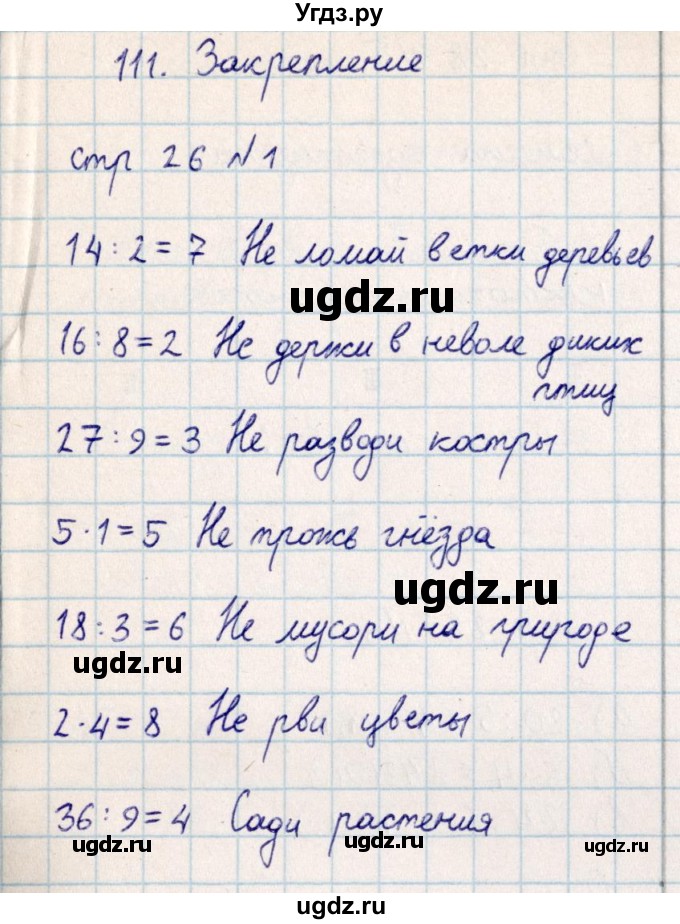 Угдз.ру
111. Закрепление
стр 26 №1
14:2=7 Не ломай ветки деревьев
ugdz.ru
16:8=2 Не держи в неволе диких
птиц
27:9=3 Не разводи костры
5·1=5 Не трожь гнёзда
ugdz.ru
18:3=6 Не мусори на природе
ugdz.ru
2·4=8 Не рви цветы
36:9=4 Сади растения
ugdz.ru ugdz.ru ugdz.ru
ugdz.ru